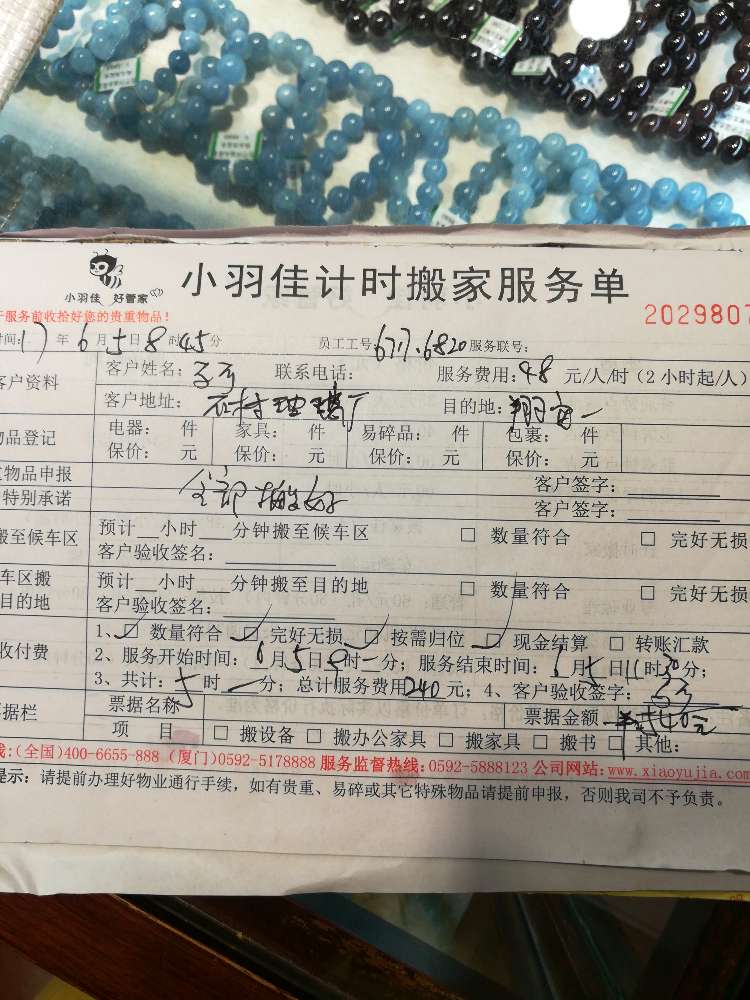 小羽佳 好管家
小羽佳计时搬家服务单
服务前收拾好您的贵重物品！
2029807
时间：17年6月5日8时45分 员工工号：6717.6820 服务联号：
客户资料 客户姓名： 联系电话： 服务费用：48 元/人/时（2小时起/人）
客户地址： 目的地：
物品登记 电器： 件 家具： 件 易碎品： 件 包裹： 件
保价： 元 保价： 元 保价： 元 保价： 元
物品申报 客户签字：
特别承诺 全部搬好 客户签字：
搬至候车区 预计__小时___分钟搬至候车区 □ 数量符合 □ 完好无损
客户验收签名：
车区搬 预计__小时___分钟搬至目的地 □ 数量符合 □ 完好无损
目的地 客户验收签名：
收付费 1、☑ 数量符合 ☑ 完好无损 ☑ 按需归位 ☑ 现金结算 □ 转账汇款
2、服务开始时间：6月5日 时一分；服务结束时间：6月5日11时30分；
3、共计：5时一分；总计服务费用240元；4、客户验收签字：
据栏 票据名称 票据金额 240元
项 目 □ 搬设备 □ 搬办公家具 □ 搬家具 □ 搬书 □ 其他：
线：(全国)400-6655-888 (厦门)0592-5178888 服务监督热线：0592-5888123 公司网站：www.xiaoyujia.com
提示：请提前办理好物业通行手续，如有贵重、易碎或其它特殊物品请提前申报，否则我司不予负责。